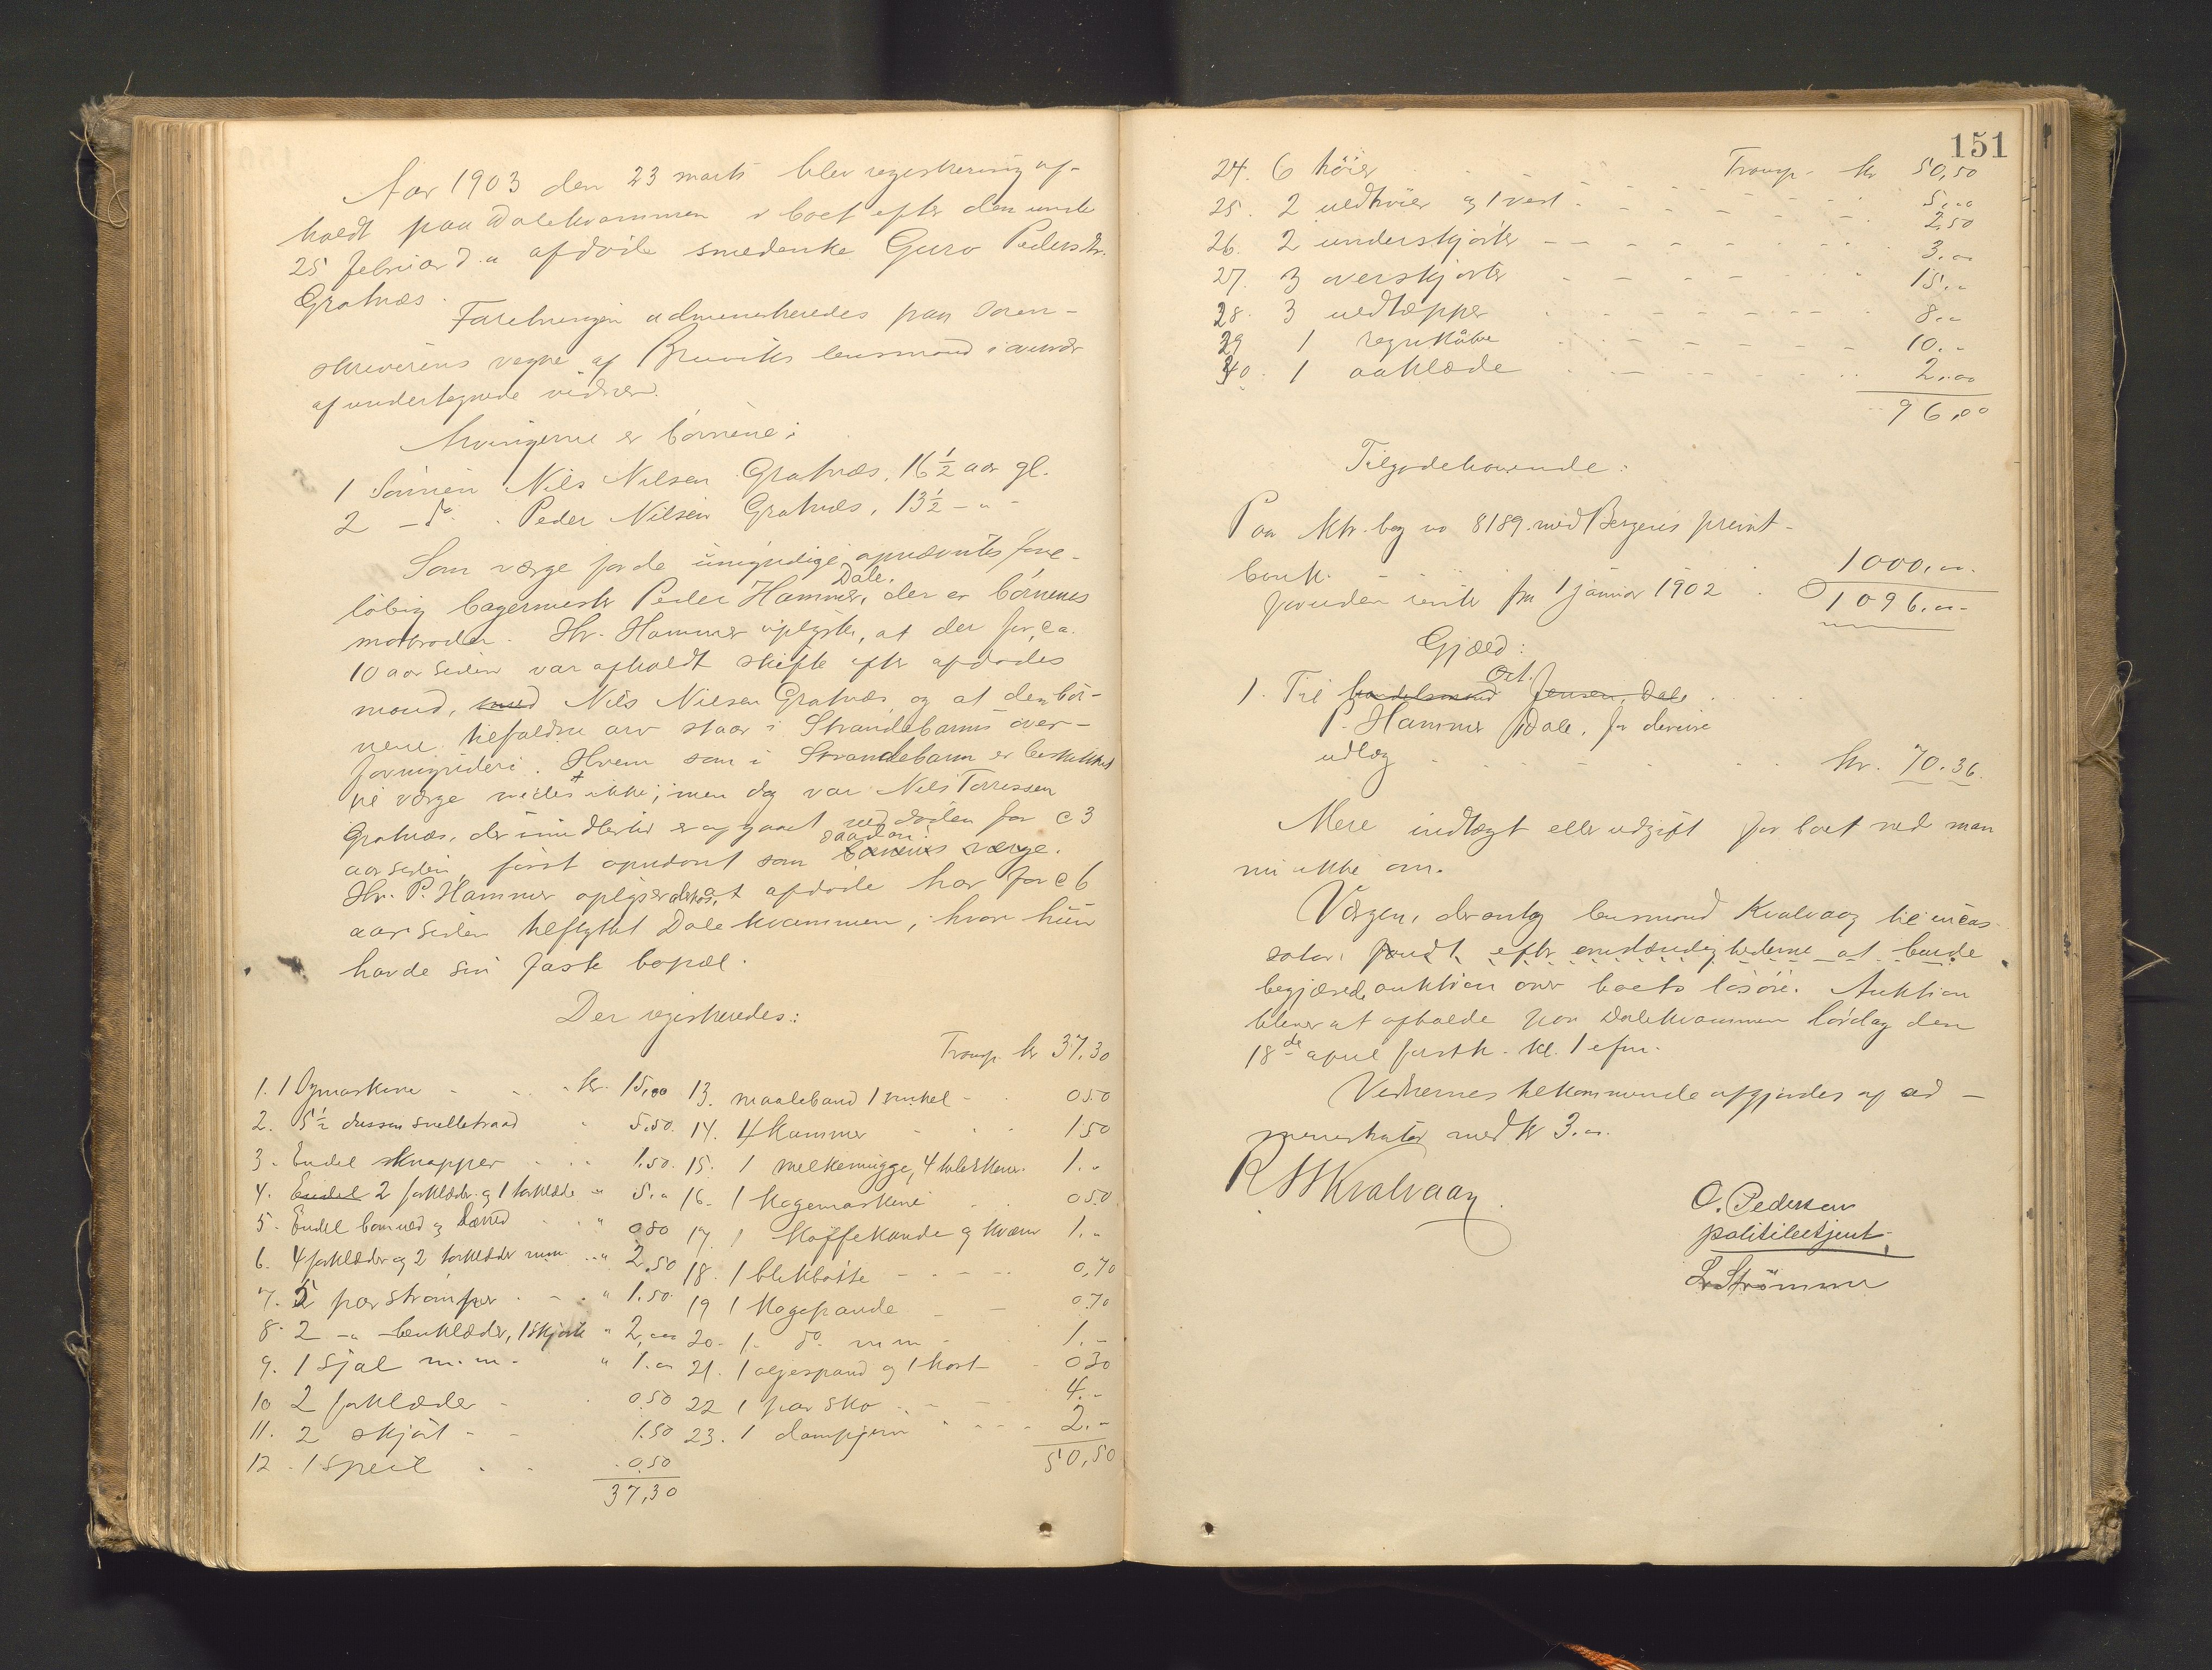 Aar 1903 den 23 marts blev registrering af-
holdt paa Dalekvammen i boet efter den under
25 februar d.a afdøde smedenke Guro Pedersdtr.
Gratnæs.
Forretningen administreredes paa soren-
skriverens vegne af Bruviks lensmand i overvær
af undertegnede vidner.
Arvingerne er børnene:
1 Sønnen Nils Nilsen Gratnæs, 16 1/2 aar gl.
2 - do. Peder Nilsen Gratnæs, 13 1/2 - " -
Som værge for de umyndige opnævntes fore-
løbig bagermester Peder Hammer, Dale, der er børnenes
morbroder. Hr. Hammer oplyste, at der for ca.
10 aar siden var afholdt skifte efter afdødes
mand, smed Nils Nilsen Gratnæs, og at den bør-
nene tilfaldne arv staar i Strandebarms over-
formynderi. Hvem som i Strandebarm er beskikket
til værge vides ikke; men dog var Nils Torressen
Gratnæs, der imidlertid er afgaaet ved døden for c 3
aar siden, først opnævnt som saadan. børnenes værge.
Hr. P. Hammer oplyser derhos, at afdøde har for c 6
aar siden tilflyttet Dalekvammen, hvor hun
havde sin faste bopæl.
Der registreredes:
Transp. kr 37,30
1. 1 Symaskine - - - kr. 15,00
2. 5 1/2 dussen snelletraad " 5,50.
3. Endel knapper - - - 1.50.
4. Endel 2 forklæder og 1 torklæde " 5."
5. Endel bomuld og lærred - - " 0.80
6. 4 forklæder og 2 torklæder m.m. " 2,50
7. 5 par strømper - - - " 1.50.
8. 2 -" benklæder, 1 skjorte " 2,00
9. 1 sjal m.m. - " 1.00
10 2 forklæder - 0.50
11. 2 skjørt - - 1.50
12. 1 speil - - 0.50
37,30
13. maaleband 1 vinkel - 050
14. 4 kammer - - - 1.50
15. 1 melkemugge, 4 tallerkener 1.-
16. 1 kogemaskine 050
17. 1 kaffekande og kværn 1.-
18. 1 blikbøtte - - - 0,70
19 1 kogepande - - 0.70
20. 1. do. m.m. - 1.-
21. 1 oljespand og 1 kost - 030
22 1 par sko - - - 4.-
23. 1 dampjern - - - - 2.-
50,50
151
24. 6 høier Transp. kr 50,50
25. 2 uldtrøier og 1 vest - - - - 5,00
26. 2 underskjorter - - - - - 2,50
27. 3 overskjorter - - - - 3.00
28. 3 uldtæpper - - - - 15.-
29 1 regnkåbe - - - - 8.-
30. 1 aaklæde - - - - 10.-
2.00
96,00
Tilgodehavende:
Paa ktr. bog no 8189 ved Bergens privat-
bank - 1000,00.
foruden rente fra 1 januar 1902 1096.00
Gjæld:
1. Til handelsmand Ort. Jensen, Dale
P. Hammer Dale, for diverse
udlæg kr. 70.36.
Mere indtægt eller udgift for boet ved man
nu ikke om.
Værgen, der antog lensmand Kvalvaag til incas-
sator, fandt efter omstændighederne at burde
begjære auktion over boets løsøre. Auktion
bliver at afholde paa Dalekvammen lørdag den
18de april førstk. kl. 1 efm.
Vidnernes tilkommende afgjordes af ad-
ministrator med kr 3.00.
R H Kvalvaag.
O. Pedersen
politibetjent.
L. Strømmer